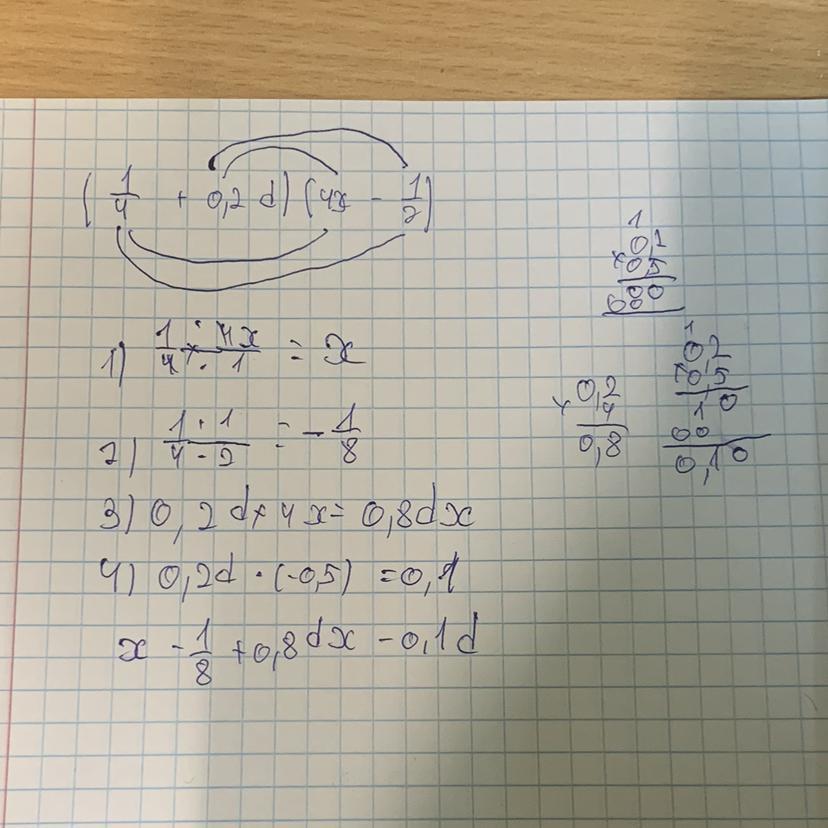 (1/4 + 0,2 d) (4x - 1/2)
1) 1/4 · 4x/1 = x
2) 1 · 1 / 4 - 2 = - 1/8
3) 0,2d × 4x = 0,8dx
4) 0,2d · (-0,5) = 0,1
x - 1/8 + 0,8dx - 0,1d
0,2
× 4
0,8
1
0,2
× 0,5
1 0
0 0
0,10